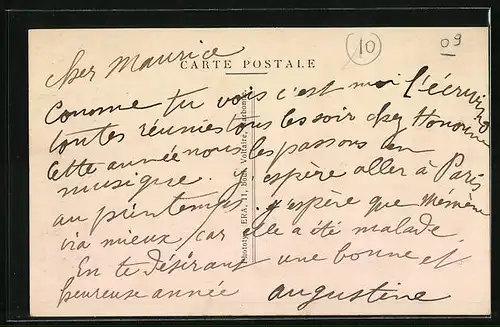 10
09
CARTE POSTALE
cher Maurice
Comme tu vois c'est moi l'écrivino
toutes réunies tous les soir chez Honorine
cette année nous les passons en
musique. j'espère aller à Paris
au printemps. j'espère que mémène
va mieux car elle a été malade
En te désirant une bonne et
heureuse année augustine
Phototyp. ERA, 11, Boul. Voltaire, Narbonne